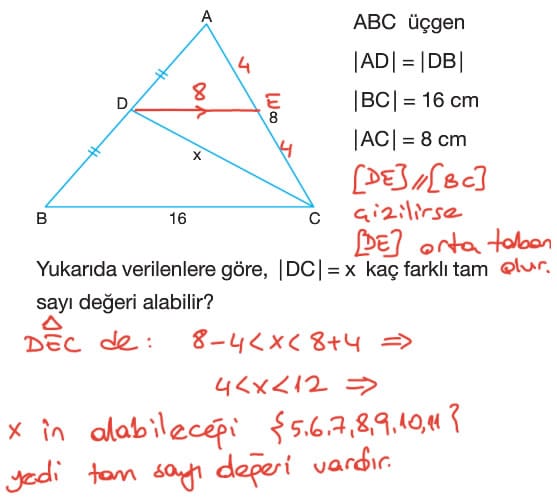 A
ABC üçgen
|AD| = |DB|
|BC| = 16 cm
|AC| = 8 cm
4
8
D
E
8
x
4
B
16
C
[DE] // [BC]
çizilirse
[DE] orta taban
olur.
Yukarıda verilenlere göre, |DC| = x kaç farklı tam
sayı değeri alabilir?
DEC de: 8-4<x<8+4 ⇒
4<x<12 ⇒
x in alabileceği {5,6,7,8,9,10,11}
yedi tam sayı değeri vardır.